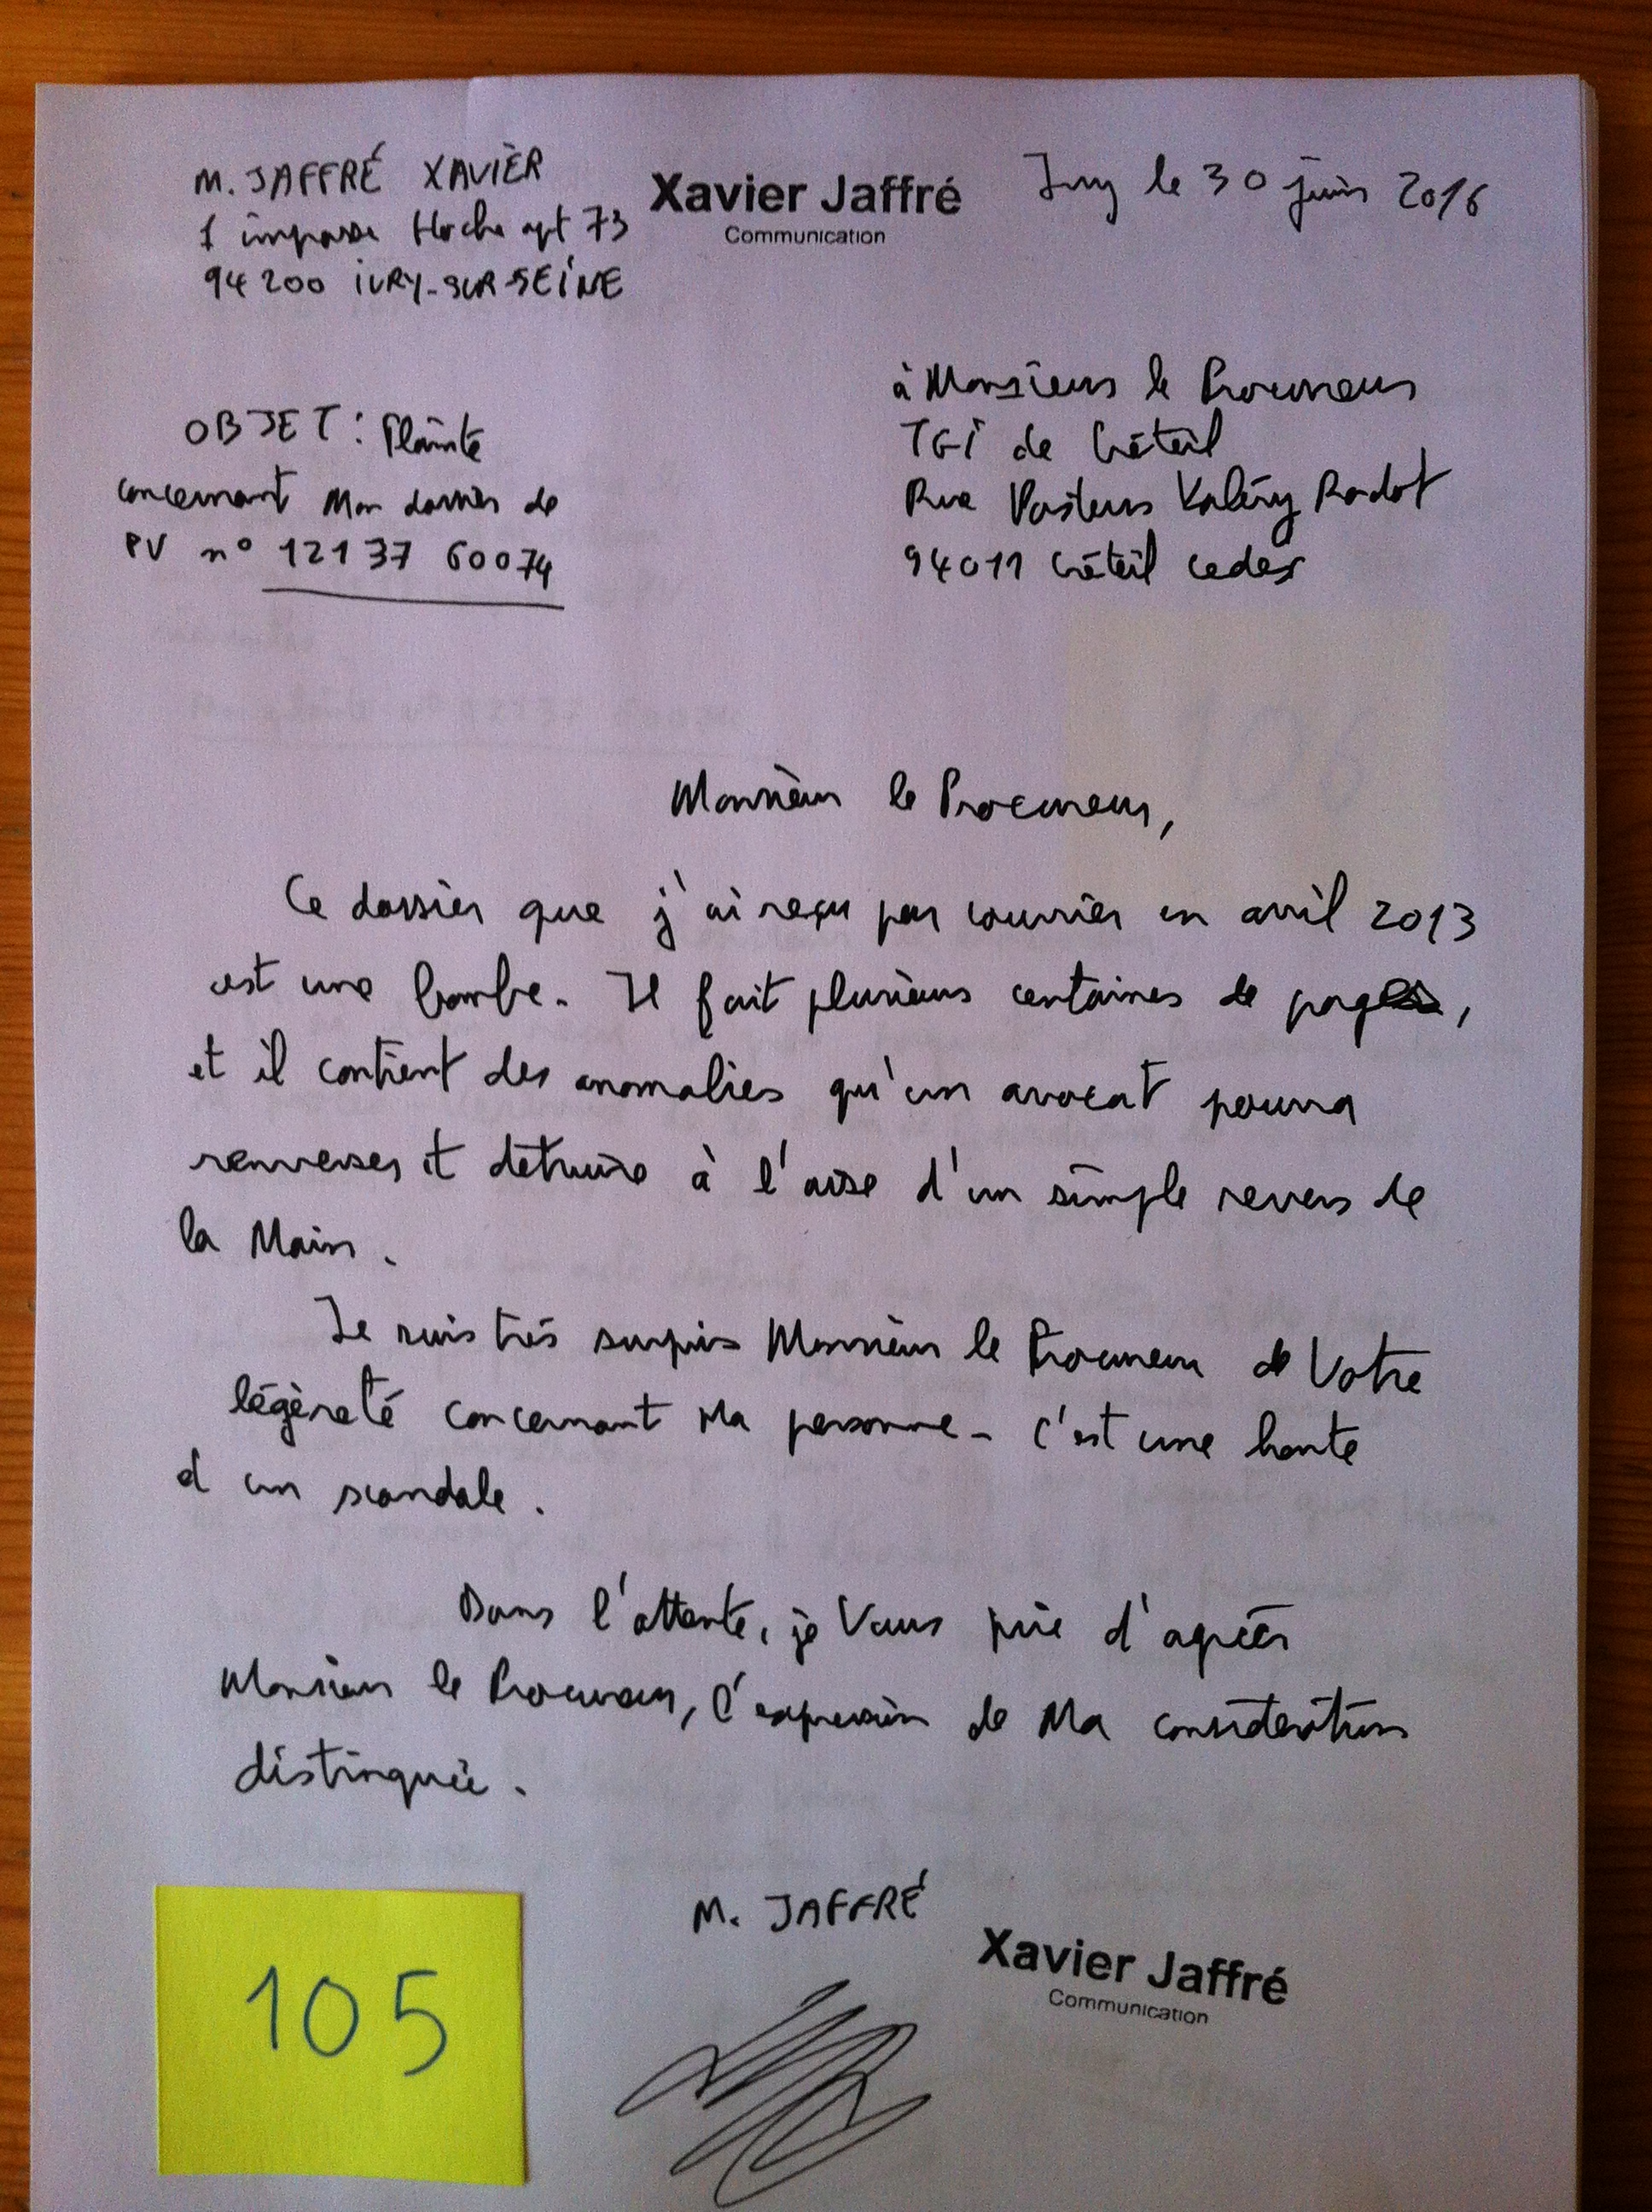 M. JAFFRÉ XAVIER
1 impasse Hoche apt 73
94200 IVRY-SUR-SEINE
Xavier Jaffré
Communication
Ivry le 30 juin 2016
à Monsieur le Procureur
TGI de Créteil
Rue Pasteur Valéry Radot
94011 Créteil cedex
OBJET : Plainte
concernant Mon dossier de
PV n° 12137 60074
Monsieur le Procureur,
Ce dossier que j'ai reçu par courrier en avril 2013
est une bombe. Il fait plusieurs centaines de pages,
et il contient des anomalies qu'un avocat pourra
renverser et détruire à l'aise d'un simple revers de
la Main.
Je suis très surpris Monsieur le Procureur de Votre
légèreté concernant Ma personne - C'est une honte
et un scandale.
Dans l'attente, je Vous prie d'agréer
Monsieur le Procureur, l'expression de Ma considération
distinguée.
M. JAFFRÉ
Xavier Jaffré
Communication
105